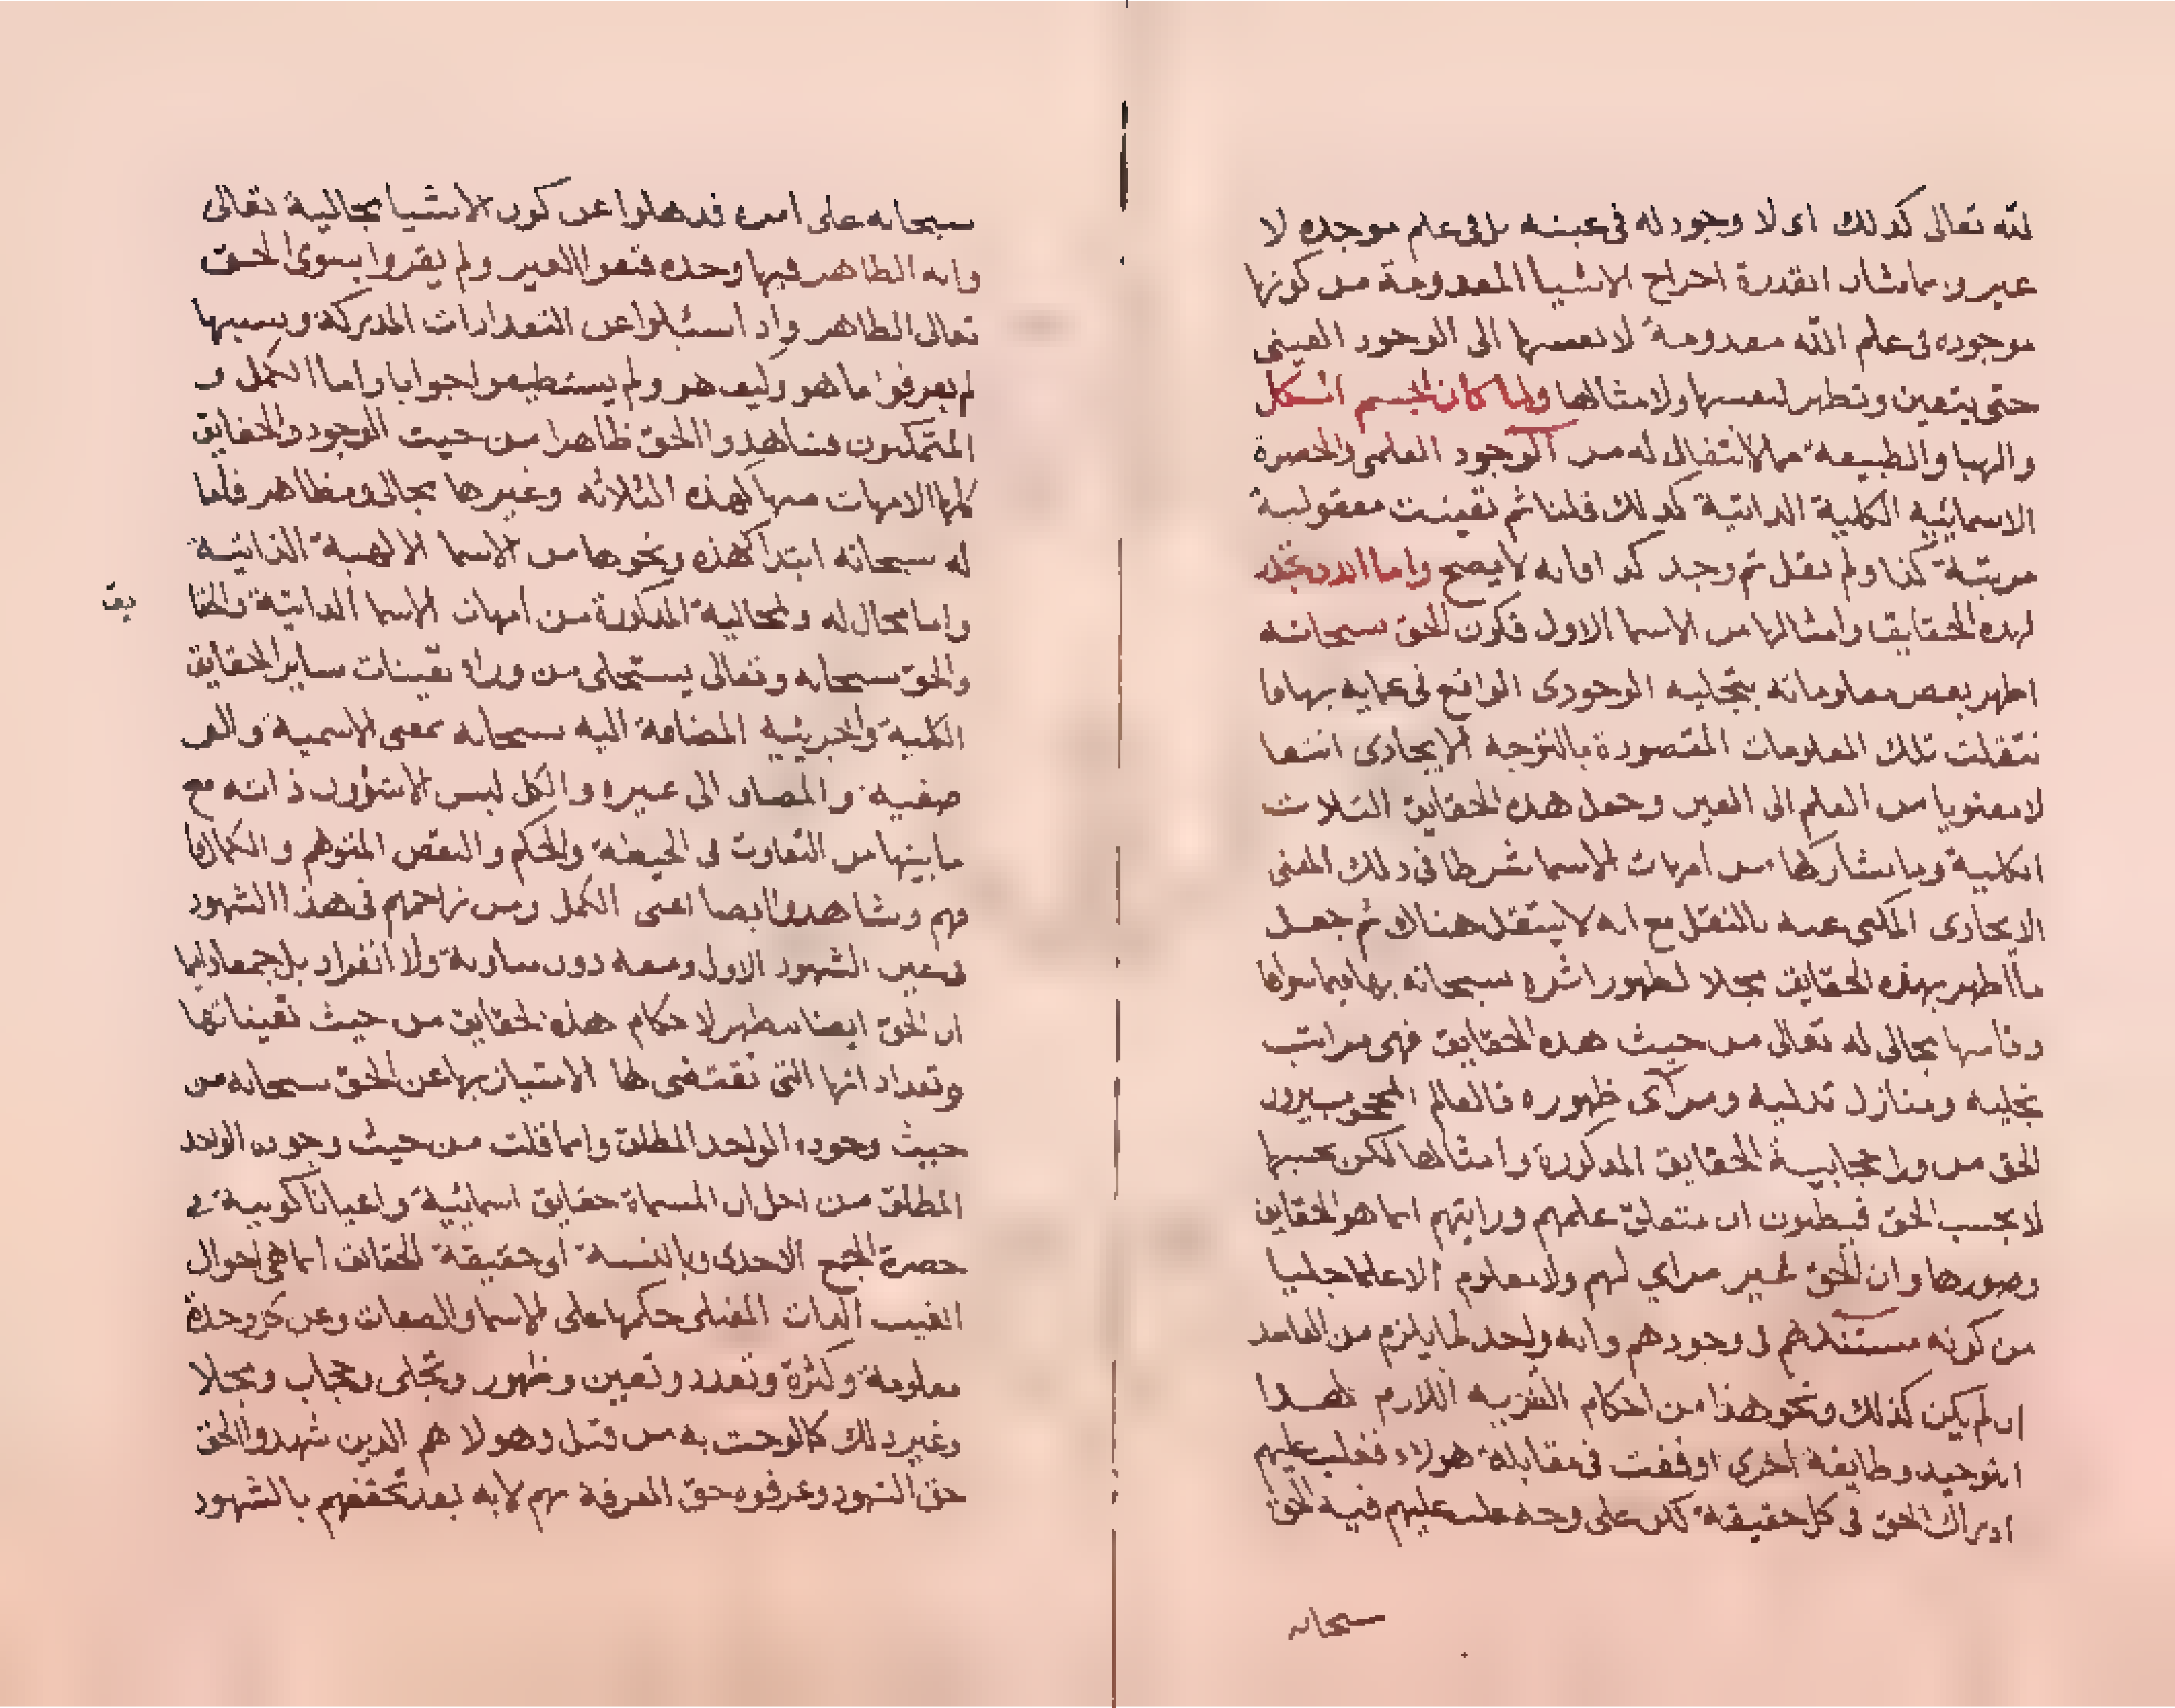 لله تعالى كذلك اى لا وجود له فى عينه بل فى علم موجده لا
غير وربما شان القدرة اخراج الاشيا المعدومة من كونها
موجوده فى علم الله معدومة لانفسها الى الوجود العينى
حتى يتعين وتظهر لنفسها ولامثالها ولما كان الجسم الكل
والهبا والطبيعة مما لا انتقال له من الوجود العلمى والحضرة
الاسمائيه الكلية الذاتية كذلك قلنا ثم تعينت معقولية
مرتبة كذا ولم نقل ثم وجد كذا فانه لا يصح واما
لهذه الحقايق وامثالها من الاسما الاول فكون الحق سبحانه
اظهر بعض معلوماته بتجليه الوجودى الواقع فى عمايه بها فا
نتقلت تلك المعلومات المقصورة بالتوجه الايجادى انتقا
لا معنويا من العلم الى العين وجعل هذه الحقايق الثلاث
الكلية وما شاركها من امهات الاسما شرطا فى ذلك المعنى
الايجادى المكنى عنه بالنقل مع انه لا ينتقل هناك ثم جعل
ما اظهر بهذه الحقايق مجلا لظهور اثره سبحانه بها فيما سواها
وقامها مجالى له تعالى من حيث هذه الحقايق فهى مراتب
تجليه ومنازل تدليه ومرآى ظهوره فالعالم المحجوب يرون
الحق من ورا حجابية الحقايق المذكورة وامثالها لكن بحسبها
لا بحسب الحق فيظنون ان متعلق علمهم ورايتهم انما هو الحقايق
وصورها وان الحق غير مراي لهم ولا معلوم الا علما جليا
من كونه مستندهم فى وجودهم وانه واحد لما يلزم من المفاسد
ان لم يكن كذلك ونحو هذا من احكام التنزيه اللازم لهذا
التوحيد وطايفة اخرى اوقفت فى مقابلة هولاء فغلب عليهم
ادراك الحق فى كل حقيقة لكن على وجه غلب عليهم فيه الحق
سبحانه
سبحانه على امره فذهلوا عن كون الاشيا مجالية تعالى
وانه الظاهر فيها وحده فنفوا الغير ولم يقروا بسوى الحق
تعالى الظاهر واذا سئلوا عن التعدادات المدركة وسببها
لم يعرفوا ما هو وكيف هو ولم يستطيعوا جوابا واما الكمل و
المتمكنون فشاهدوا الحق ظاهرا من حيث الوجود والحقايق
كلها الامهات منها كهذه الثلاثه وغيرها مجالى ومظاهر فلما
له سبحانه ابتدا كهذه ونحوها من الاسما الالهية الذاتية
واما مجال له والمجالية المذكورة من امهات الاسما الذاتية والحقا
يق
والحق سبحانه وتعالى يستجلى من وراء تعينات ساير الحقايق
الكلية والجزيئيه المضافة اليه سبحانه بمعنى الاسمية والو
صفية والمضاف الى غيره والكل ليس الا شؤون ذاته مع
ما بينها من التفاوت فى الحيطة والحكم والنقص المتوهم والكمال
فهم وشاهدوا ايضا اعنى الكمل ومن زاحمهم فى هذا الشهود
فى عين الشهود الاول ومعه دون مناوبة ولا انفراد بل جمعا
ان الحق ايضا مظهر لاحكام هذه الحقايق من حيث تعيناتها
وتعداداتها التى تقتضى لها الامتياز بها عن الحق سبحانه من
حيث وجوده الواحد المطلق وانما قلت من حيث وجوده الواحد
المطلق من اجل ان المسماة حقايق اسمائية واعيانا كونية فى
حضرة الجمع الاحدى وبالنسبة الى حقيقة الحقائق انما هى احوال
الغيب الذات المفيلى حكمها على الاسما والصفات وعن كل وحدة
معلومة وكثرة وتعدد وتعين وظهور وتجلى وحجاب ومجلا
وغير ذلك كما لوحت به من قبل وهولا هم الذين شهدوا الحق
حق الشهود وعرفوه حق المعرفة بهم لا به بعد تحققهم بالشهود